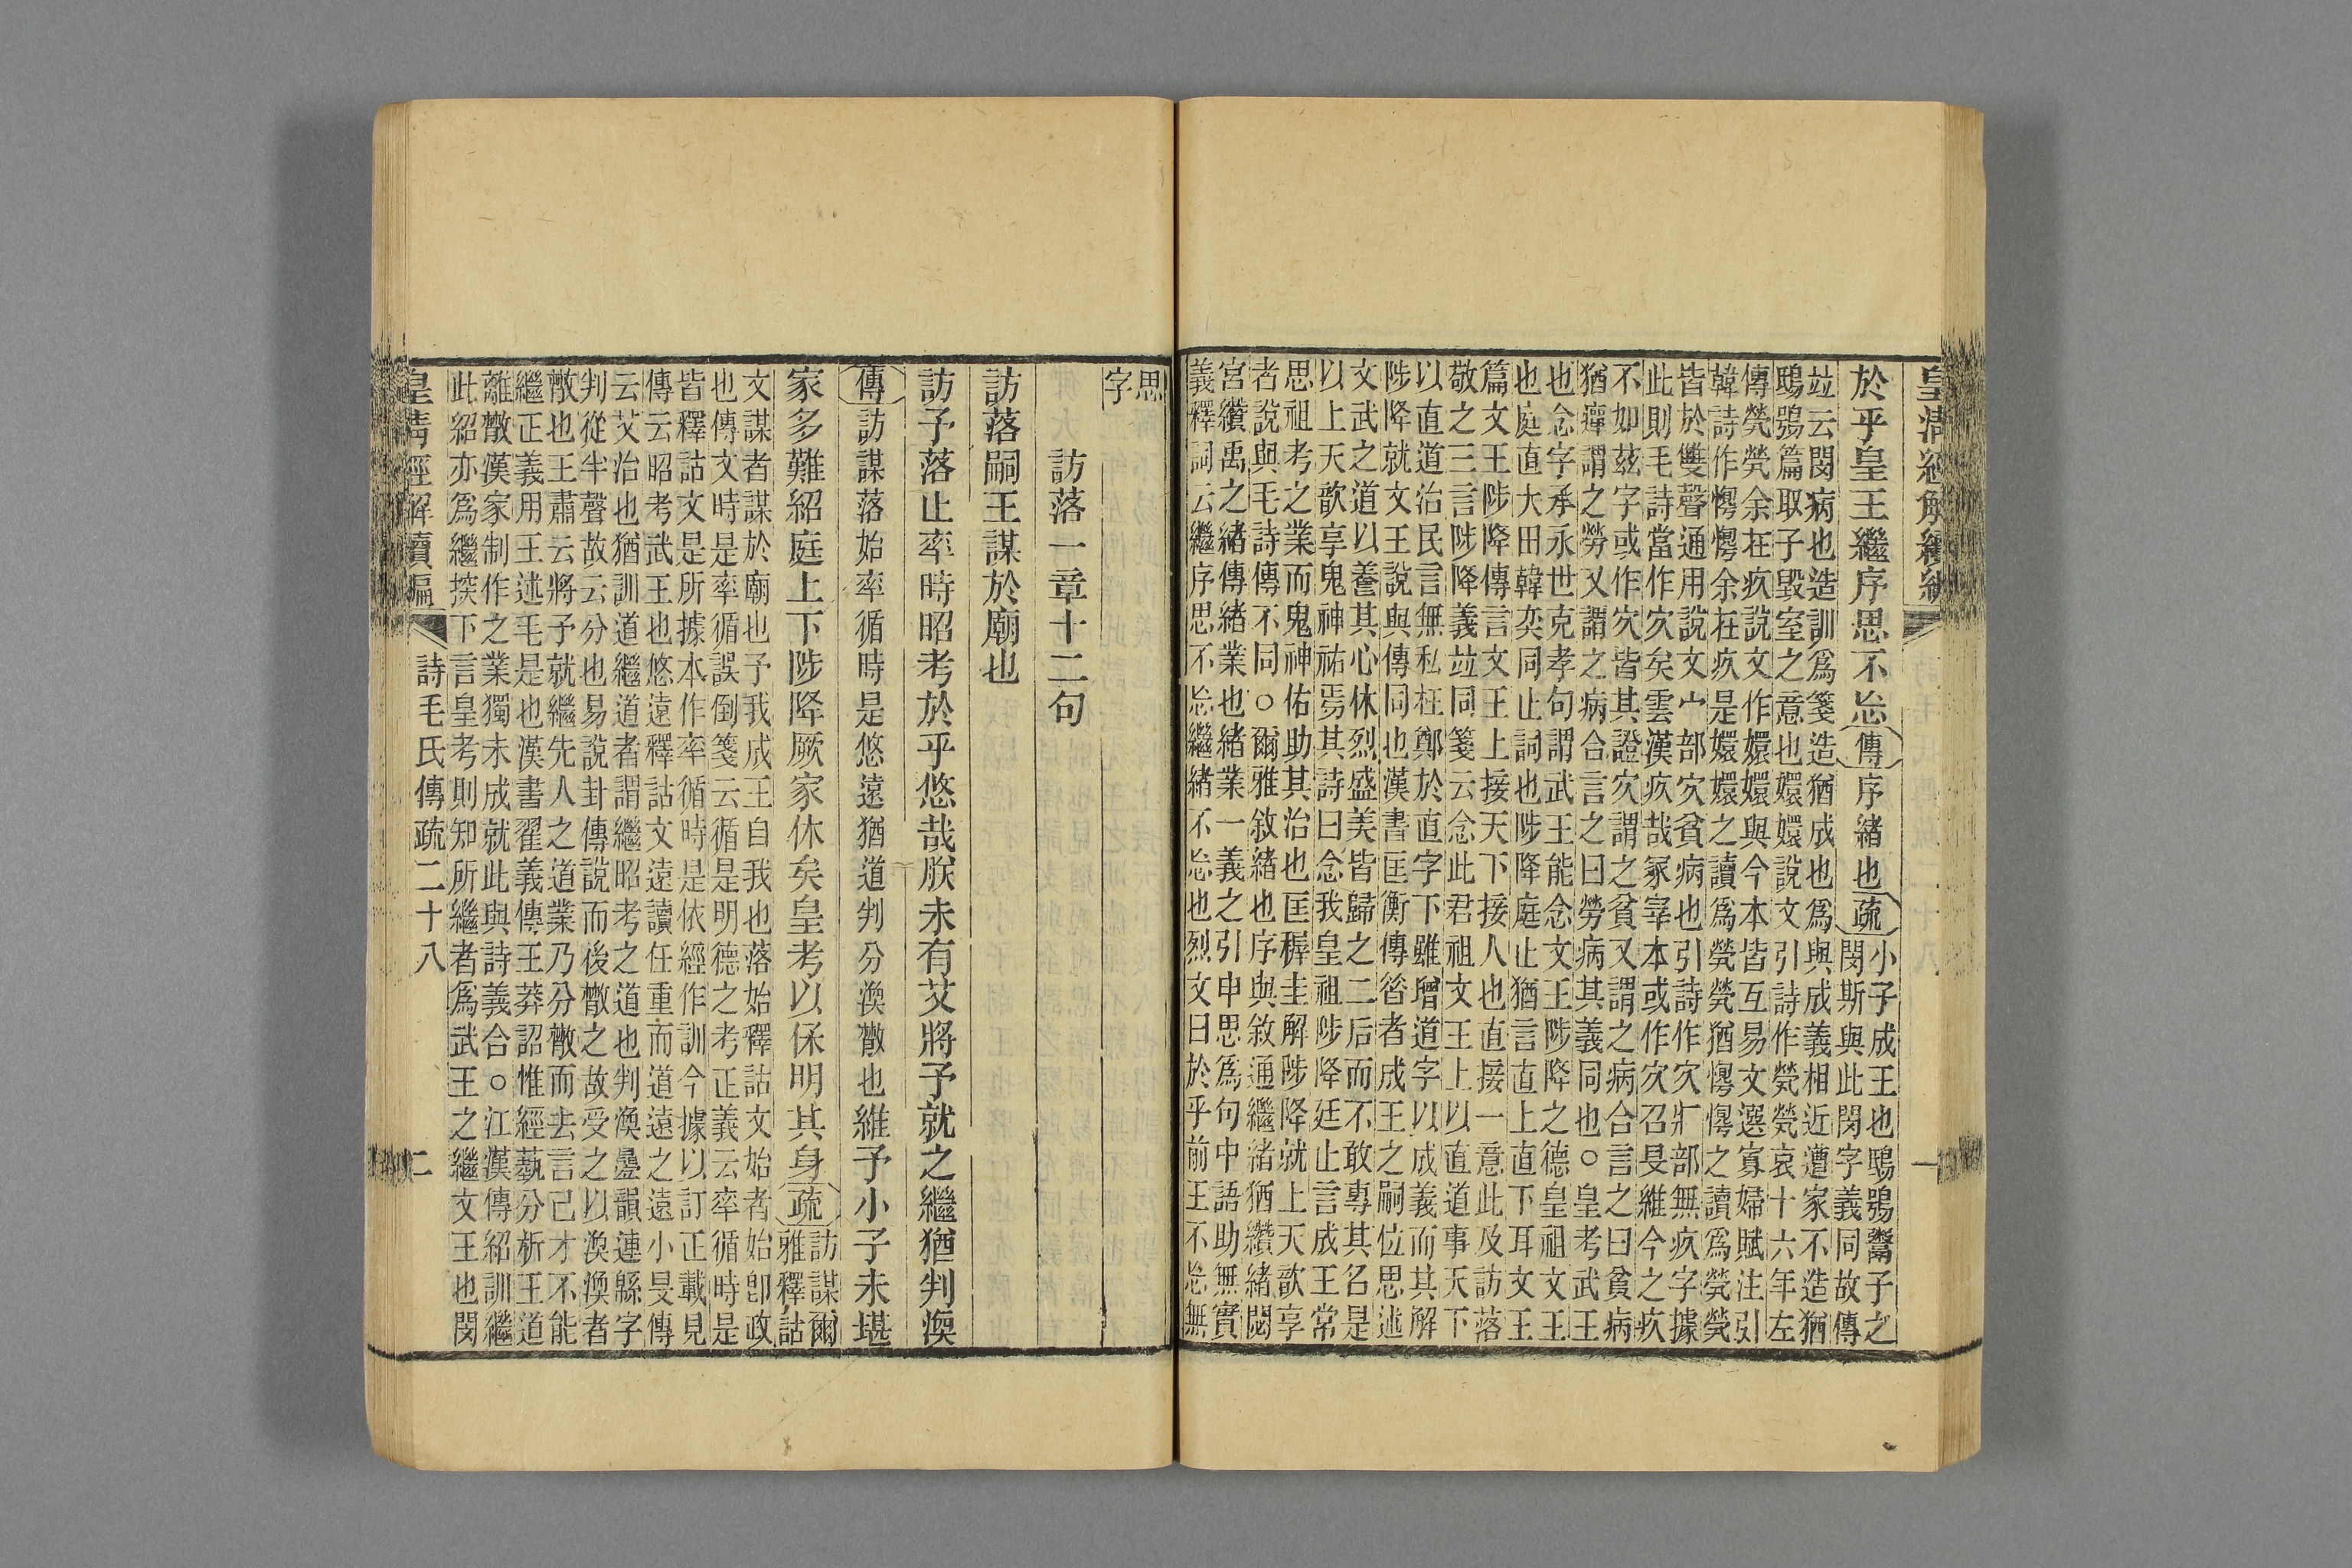 皇清經解續編
一
於乎皇王繼序思不忘傳序緒也疏
小子成王也鴟鴞鬻子之
閔斯與此閔字義同故傳
竝云閔病也造訓爲箋造猶成也爲與成義相近遭家不造猶
鴟鴞篇取子毀室之意也嬛嬛說文引詩作煢煢哀十六年左
傳煢煢余在疚說文作嬛嬛與今本皆互易文選寡婦賦注引
韓詩作惸惸余在疚是嬛嬛之讀爲煢煢猶惸惸之讀爲煢煢
皆於雙聲通用說文宀部㝌貧病也引詩作㝌疒部無疚字據
此則毛詩當作㝌矣雲漢疚哉冢宰本或作㝌召旻維今之疚
不如茲字或作㝌皆其證㝌謂之貧又謂之病合言之曰貧病
猶癉謂之勞又謂之病合言之曰勞病其義同也○皇考武王
也念字承永世克孝句謂武王能念文王陟降之德皇祖文王
也庭直大田韓奕同止詞也陟降庭止猶言直上直下耳文王
篇文王陟降傳言文王上接天下接人也直接一意此及訪落
敬之三言陟降義竝同箋云念此君祖文王上以直道事天下
以直道治民言無私枉鄭於直字下雖增道字以成義而其解
陟降就文王說與傳同也漢書匡衡傳昝者成王之嗣位思述
文武之道以養其心休烈盛美皆歸之二后而不敢專其名是
以上天歆享鬼神祐焉其詩曰念我皇祖陟降廷止言成王常
思祖考之業而鬼神佑助其治也匡稺圭解陟降就上天歆享
者說與毛詩傳不同○爾雅敘緒也序與敘通繼緒猶纘緒閟
宮纘禹之緒傳緒業也緒業一義之引申思爲句中語助無實
義釋詞云繼序思不忘繼緒不忘也烈文曰於乎前王不忘無
思
字
訪落一章十二句
訪落嗣王謀於廟也
訪予落止率時昭考於乎悠哉朕未有艾將予就之繼猶判渙
傳訪謀落始率循時是悠遠猶道判分渙㪔也維予小子未堪
家多難紹庭上下陟降厥家休矣皇考以保明其身疏
訪謀爾
雅釋詁
文謀者謀於廟也予我成王自我也落始釋詁文始者始卽政
也傳文時是率循誤倒箋云循是明德之考正義云率循時是
皆釋詁文是所據本作率循時是依經作訓今據以訂正載見
傳云昭考武王也悠遠釋詁文遠讀任重而道遠之遠小旻傳
云艾治也猶訓道繼道者謂繼昭考之道也判渙曡韻連緜字
判從半聲故云分也易說卦傳說而後㪔之故受之以渙渙者
㪔也王肅云將予就繼先人之道業乃分㪔而去言己才不能
繼正義用王述毛是也漢書翟義傳王莽詔惟經藝分析王道
離㪔漢家制作之業獨未成就此與詩義合○江漢傳紹訓繼
此紹亦爲繼㨒下言皇考則知所繼者爲武王之繼文王也閔
皇清經解續編
詩毛氏傳疏二十八
二